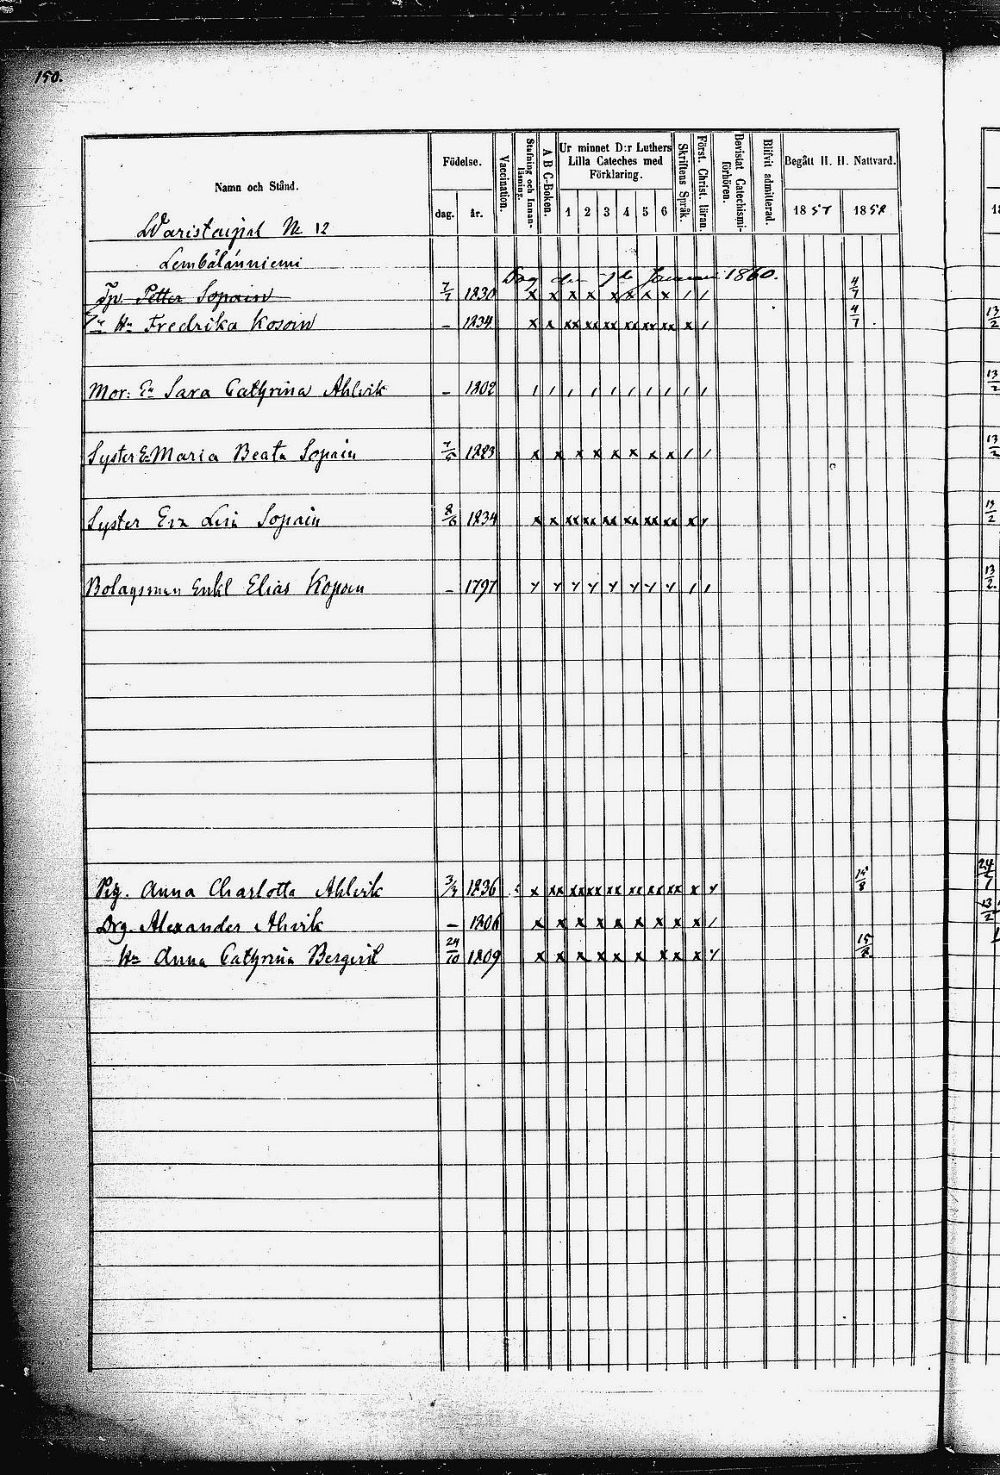 150.
Namn och Stånd. Födelse. dag. år. Vaccination. Stafning och Innanläsning. A B C-Boken. Ur minnet D:r Luthers Lilla Cateches med Förklaring. 1 2 3 4 5 6 Skriftens Språk. Förest. Christ. läran. Bevistat Catechismiförhören. Blifvit admitterad. Begått H. H. Nattvard. 1857 1858
Waristaipal No 12
Lembälänniemi
Dog den Januari 1860.
Petter Sopain 7/7 1830 x x x x x x x x / / 4/7
Hu Fredrika Kosoin – 1834 x x xx xx xx xx xx xx x / 4/7
Mor: Sara Cathrina Ahlvik – 1802 / / / / / / / / / /
Syster Maria Beata Sopain 1823 x x x x x x x x / /
Syster Eva Lisi Sopain 8/6 1834 x x xx xx xx xx xx xx x
Bolagsman Enkl Elias Kopoin – 1797
Pig. Anna Charlotta Ahlvik 3/7 1836 x xx xx xx xx xx xx xx x
Drg. Alexander Ahvik – 1806 x x x x x x x x x /
Hu Anna Cathrina Bergeril 24/10 1809 x x x x x x x x 15/8